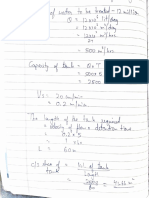 of water to be treated = 12 million
Q = 12 x 10⁶ lit/day
= 12 x 10³ m³/day
= 12000 m³/hrs
24
= 500 m³/hrs
Capacity of tank = Q x T
= 500 x
= 2500
Vs = 20 cm/min
= 0.2 m/min
The length of the tank required
= Velocity of flow x detention time
= 0.2 x 5
L = 60 m
c/s area of tank = Vol. of tank
= 41.66 m²